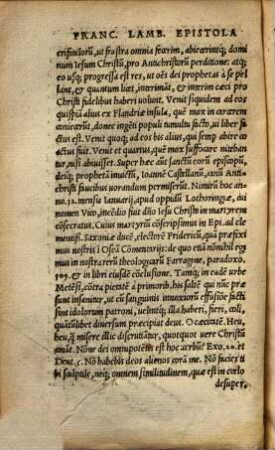 FRANC. LAMB. EPISTOLA
crificulorũ, ut frustra omnia fixerim, abiecerintq; domi
num Iesum Christũ, pro Antichristorũ perditione: atq;
eo usq; progressa est res, ut oẽs dei prophetas à se pel
lant, & quantum licet, interimãt, & interim cæci pro
Christi fidelibus haberi volunt. Venit siquidem ad eos
quispiã alius ex Flandriæ insula, quẽ mox in carcerem
coniecerũt, donec ingẽti populi tumultu facto, ut liber fi
ctus est. Venit quoq; ad eos bis alius, qui semp abire co
actus fuit. Venit et quartus, quẽ mox suffocare minaban
tur, nisi abiuisset. Super hæc aũt sanctũ eorũ episcopũ,
deiq; prophetã inuictũ, Ioannẽ Castellanũ, uni Anti
christi faucibus uorandum permiserũt. Nimirũ hoc an
no. 12. mensis Ianuarij, apud oppidũ Lothoringiæ, do
mini nomen Vico, incẽdio fuit dño Iesu Christo in martyrem
cõsecratus. Cuius martyriũ cõscripsimus in Epi. ad ele
mentiss. Saxoniæ ducẽ, electorẽ Fridericũ, quã præfixi
mus nostris i Oseã Commẽtariis: de quo etiã nõnihil egi
mus in nostrarũ theologicarũ Farragine, paradoxo.
109. & in libri eiusdẽ cõclusione. Tamq; in eadẽ urbe
Metẽsi, cõtra pietatẽ à primorib. his saltẽ qui nũc præ
sunt insanitur, ut cũ sanguinis innoxiorũ effusiõe facti
sint idolorum patroni, uelintq; illa haberi, fieri, coli,
quãtũlibet diuersum præcipiat deus. O cæcitatẽ. Heu,
heu, q̃ misere illic discruciãtur, quotquot uere Christũ
amãt. Nõne dei omnipotẽtis est hoc uerbũ? Exo. 20. et
Deut. 5. Nõ habebis deos alienos corã me. Nõ facies ti
bi sculptile, neq; omnem similitudinem, quæ est in cœlo
desuper,